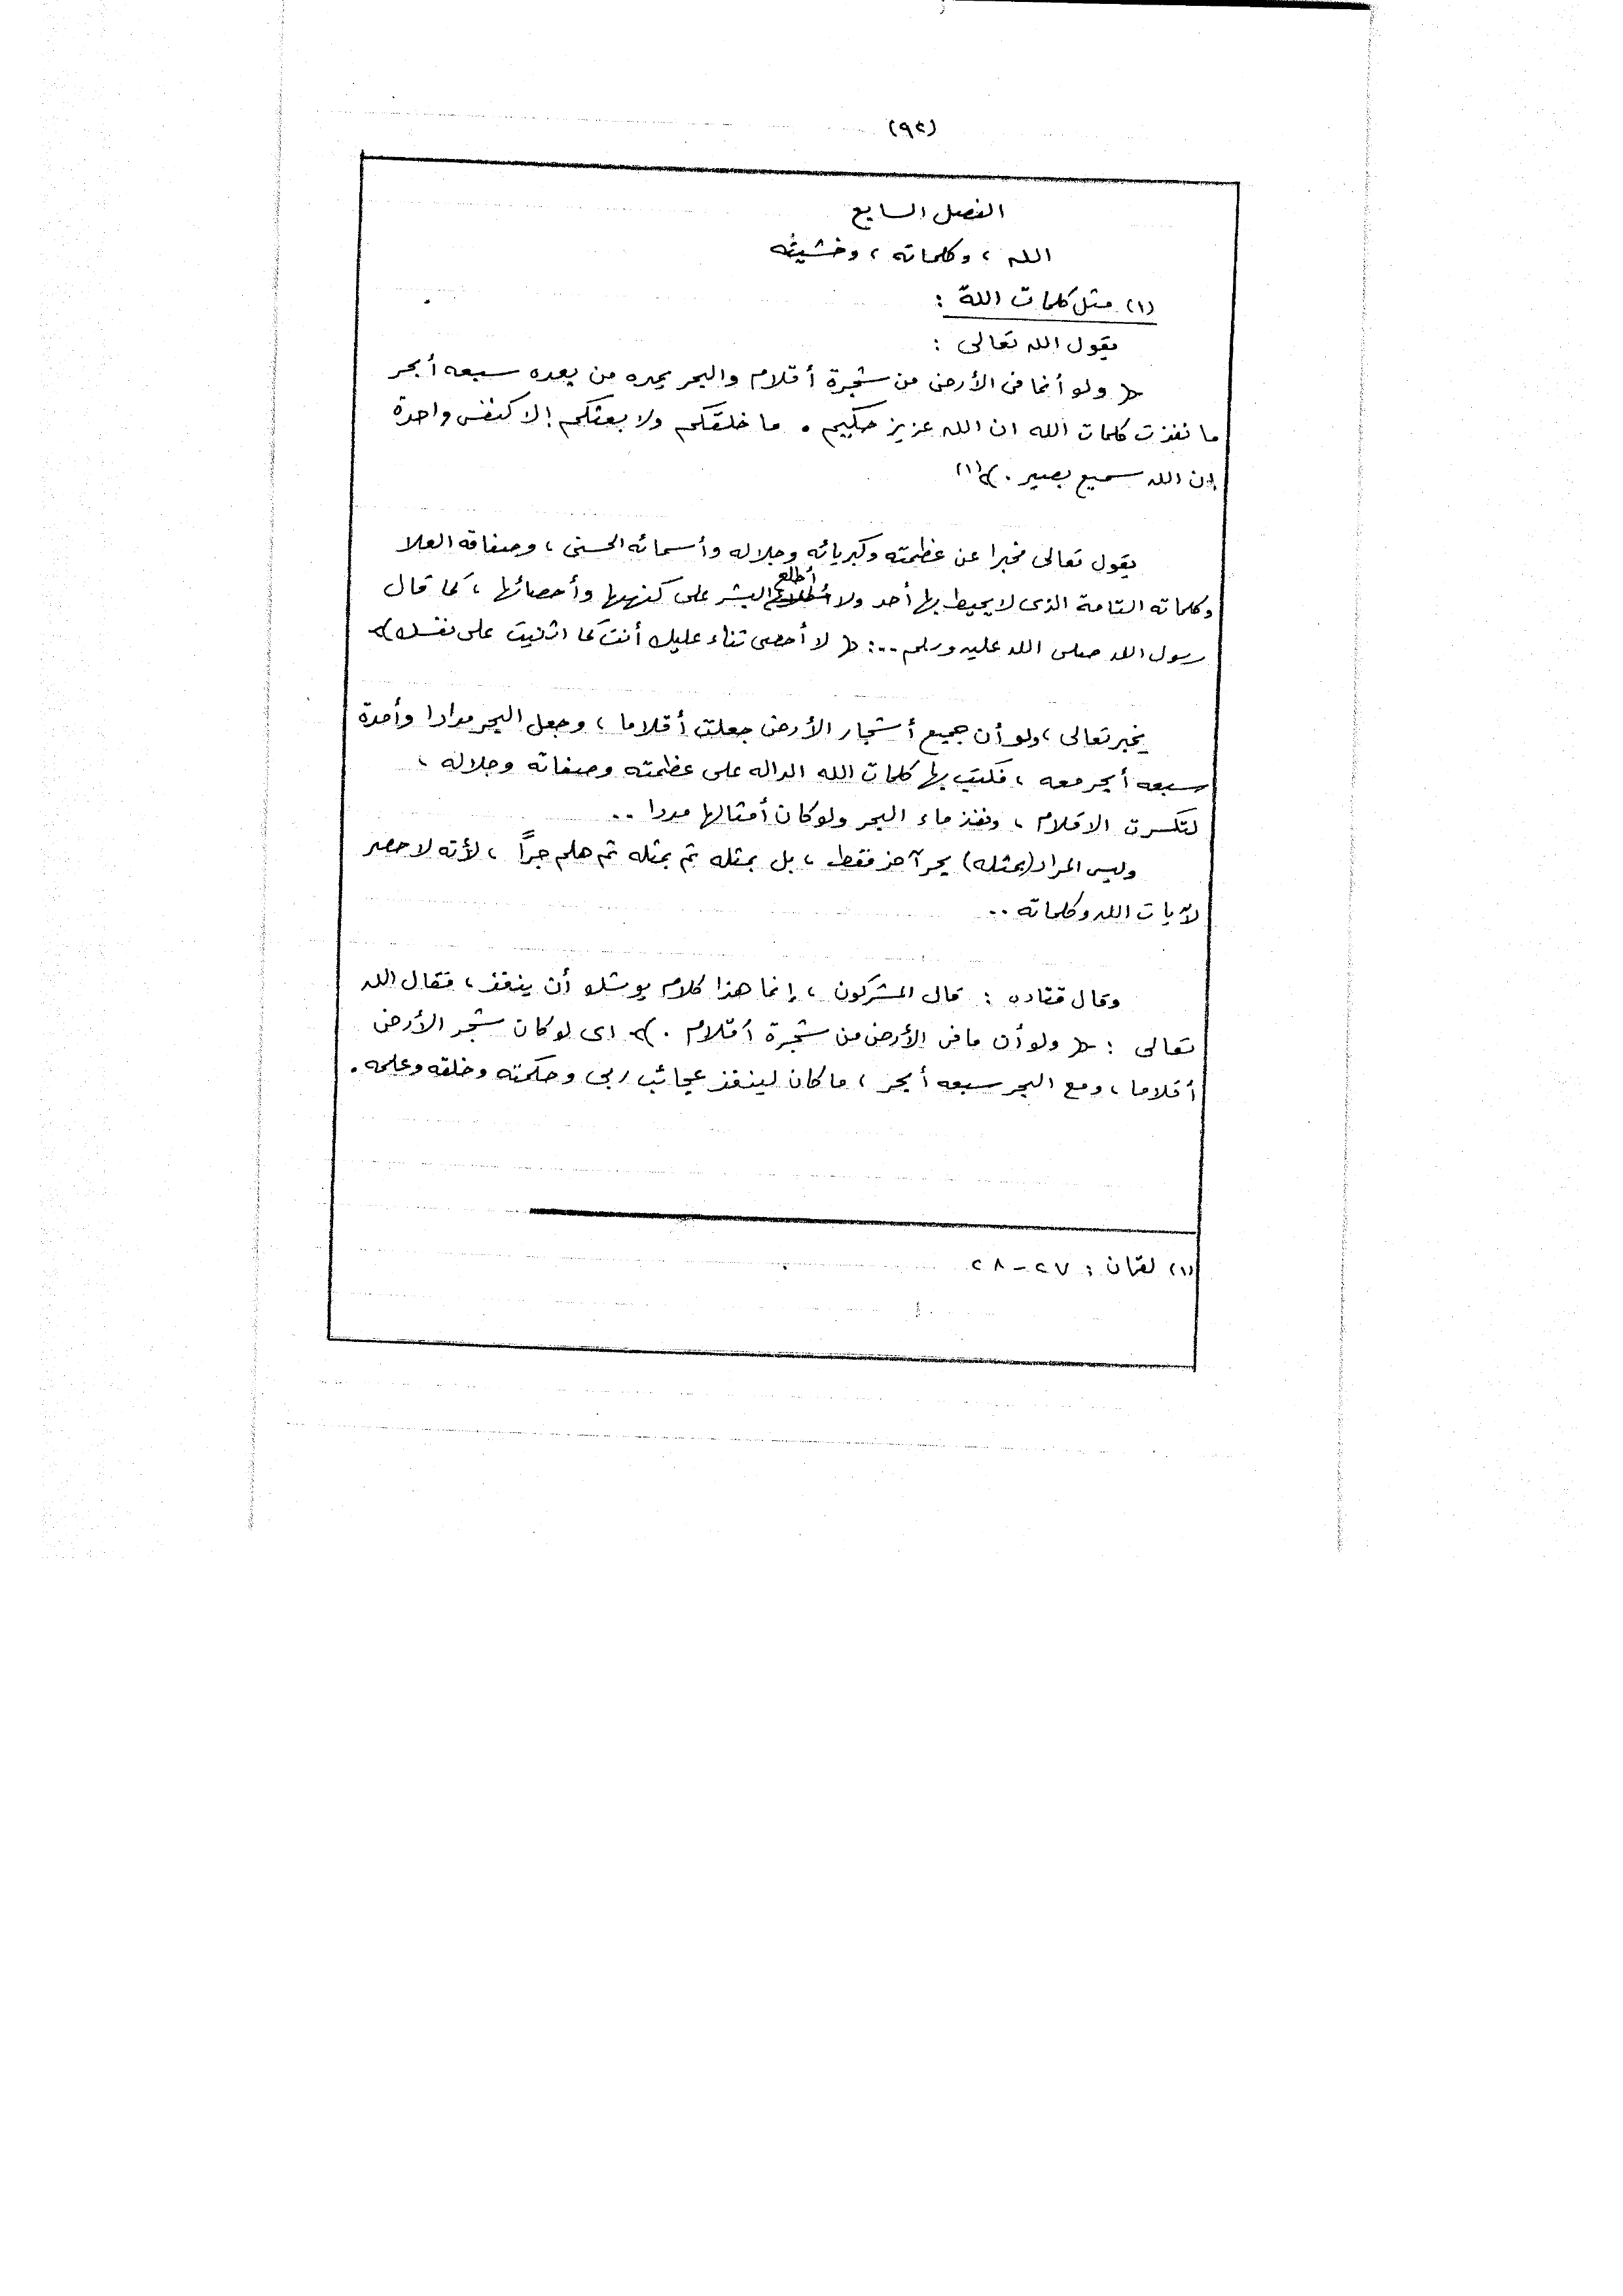 (٩٤)
الفصل السابع
الله ، وكلماته ، وخشيته
(١) مثل كلمات الله :
يقول الله تعالى :
« ولو أنما فى الأرض من شجرة أقلام والبحر يمده من بعده سبعه أبحر
ما نفذت كلمات الله ان الله عزيز حكيم . ما خلقكم ولا بعثكم إلا كنفس واحدة
إن الله سميع بصير . » (١)
يقول تعالى مخبرا عن عظمته وكبريائه وجلاله وأسمائه الحسنى ، وصفاته العلا
وكلماته التامة الذى لا يحيط بها أحد ولا أطلع البشر على كنهها وأحصائها ، كما قال
رسول الله صلى الله عليه وسلم ..: « لا أحصى ثناء عليك أنت كما اثنيت على نفسك »
يخبر تعالى ، ولو أن جميع أشجار الأرض جعلت أقلاما ، وجعل البحر مدادا وأمدة
سبعه أبحر معه ، فكتب بها كلمات الله الداله على عظمته وصفاته وجلاله ،
لتكسرت الاقلام ، ونفذ ماء البحر ولو كان أمثالها مددا ..
وليس المراد (بمثله) بحر آخر فقط ، بل بمثله ثم بمثله ثم هلم جراً ، لأنه لا حصر
لآيات الله وكلماته ..
وقال قتاده : قال المشركون ، إنما هذا كلام يوشك أن ينفذ ، فقال الله
تعالى : « ولو أن ما فى الأرض من شجرة أقلام . » اى لو كان شجر الأرض
أقلاما ، ومع البحر سبعه أبحر ، ما كان لينفذ عجائب ربى وحكمته وخلقه وعلمه .
(١) لقمان : ٢٧ - ٢٨